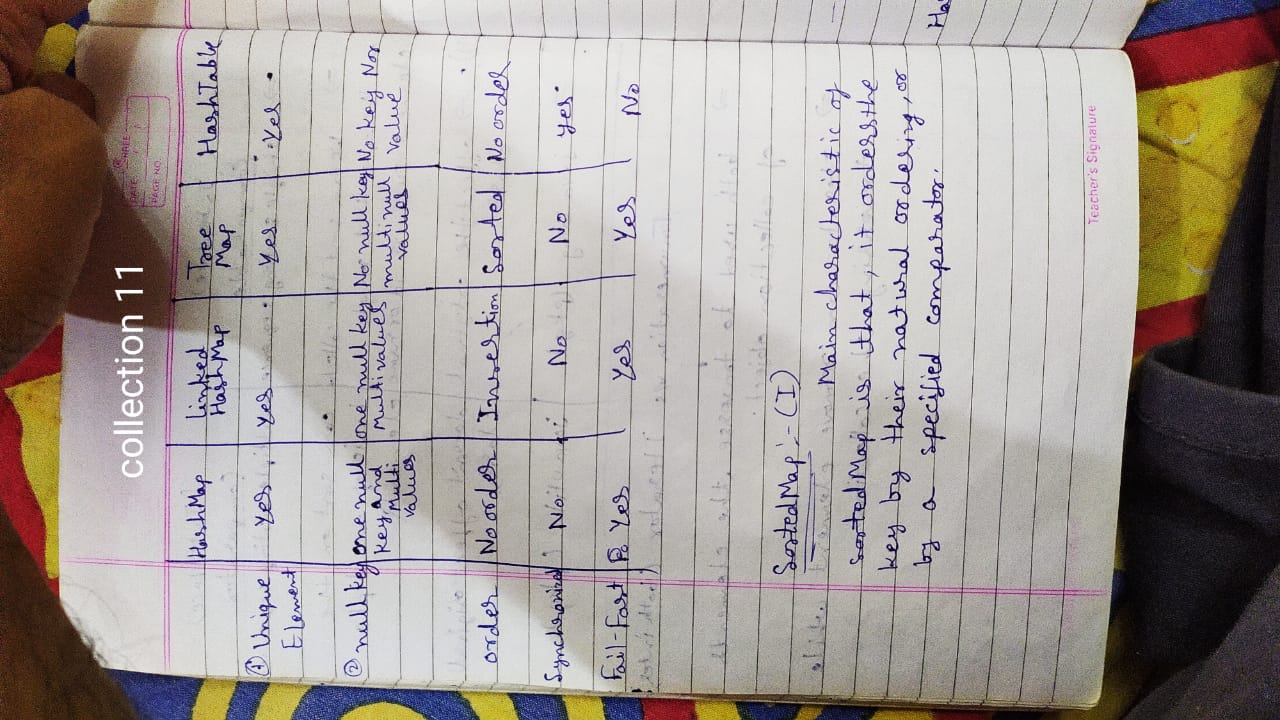 collection 11
SHREE
DATE: / /
PAGE NO.
HashMap Linked HashMap Tree Map HashTable
① Unique Element Yes Yes Yes Yes
② null key one null key, and Multi values one null key Multi values No null key multi null values No key Nor value
order No order Insertion Sorted No order
Synchronized No No No yes
Fail-Fast Yes Yes Yes No
SortedMap :- (I)
Main characteristic of
sortedMap is that, it orders the
key by their natural ordering, or
by a specified comparator.
Ha
Teacher's Signature